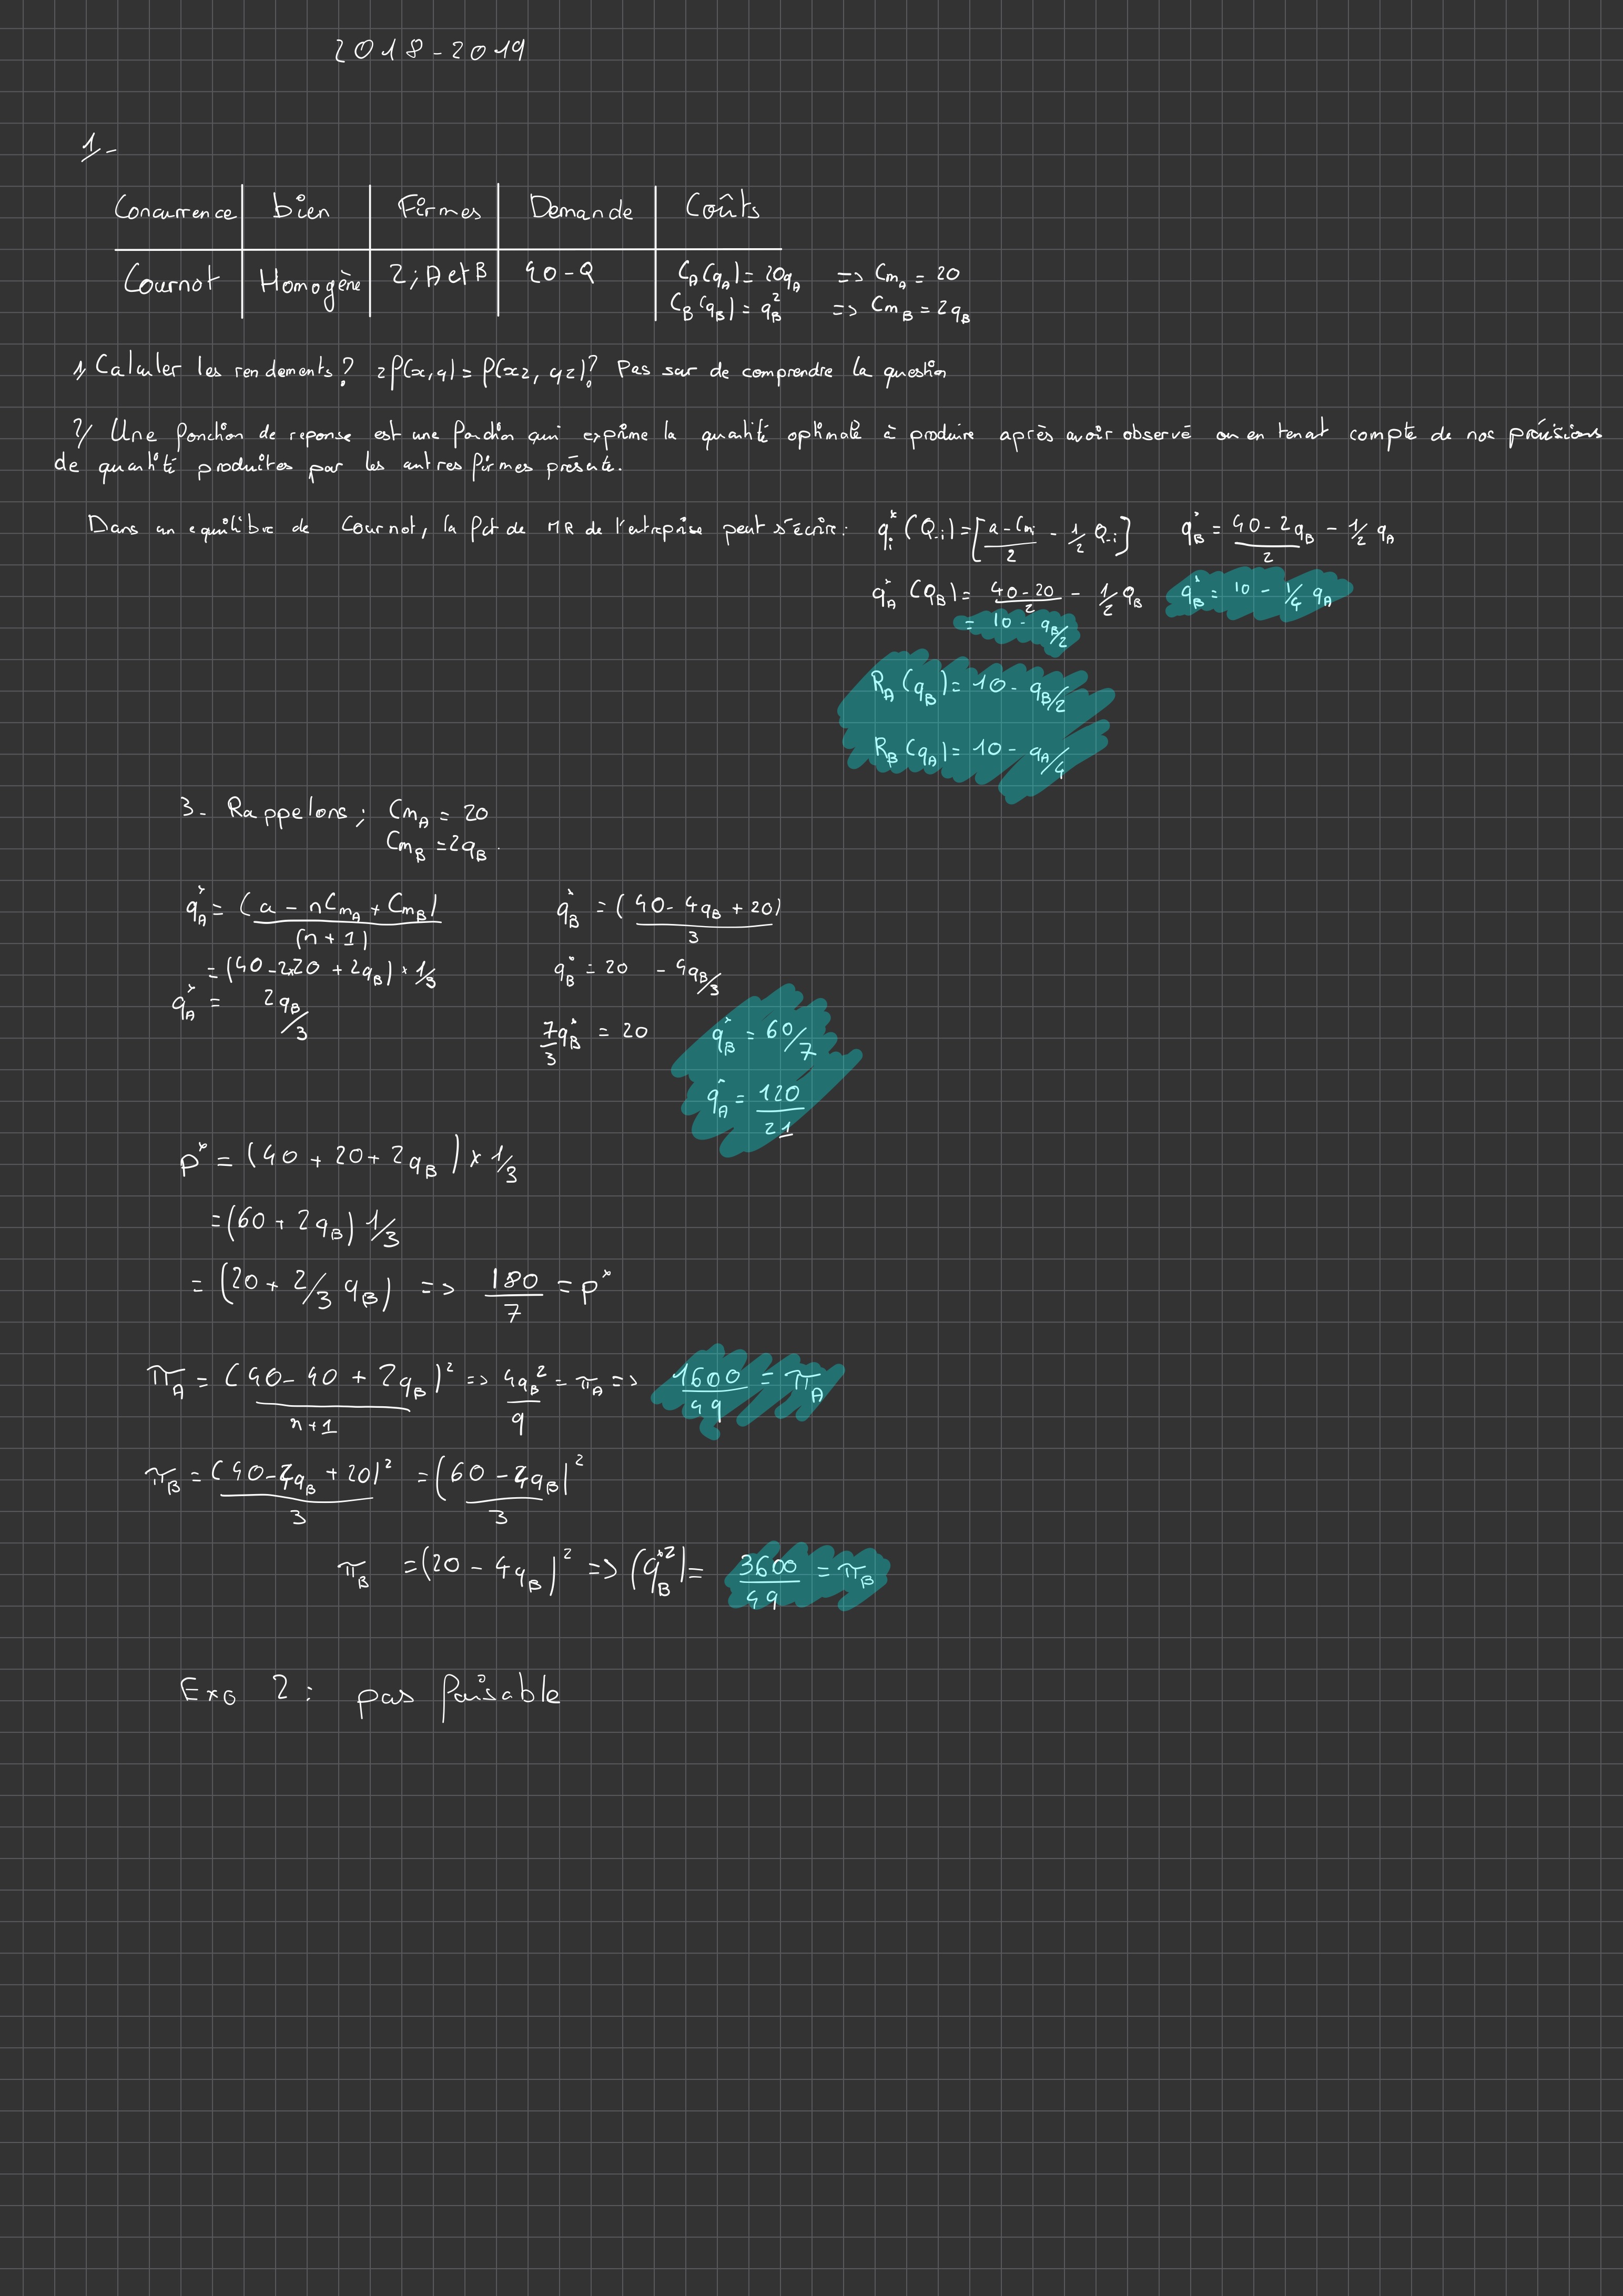 2018-2019
1-
Concurrence | bien | Firmes | Demande | Coûts
Cournot | Homogène | 2; A et B | 40-Q | C_A(q_A) = 20q_A => Cm_A = 20
C_B(q_B) = q_B² => Cm_B = 2q_B
1/ Calculer les rendements? zf(x,q) = f(xz, qz)? Pas sur de comprendre la question
2/ Une fonction de reponse est une fonction qui exprime la quantité optimale à produire après avoir observé ou en tenat compte de nos prévisions
de quantité produites par les autres firmes présente.
Dans un equilibre de Cournot, la fct de MR de l'entreprise peut s'écrire: q_i*(Q_-i) = [(a - Cm_i)/2 - 1/2 Q_-i] q_B* = (40 - 2q_B)/2 - 1/2 q_A
q_A*(Q_B) = (40-20)/2 - 1/2 q_B q_B* = 10 - 1/4 q_A
= 10 - q_B/2
R_A(q_B) = 10 - q_B/2
R_B(q_A) = 10 - q_A/4
3- Rappelons; Cm_A = 20
Cm_B = 2q_B.
q_A* = (a - nCm_A + Cm_B)/(n+1) q_B* = (40 - 4q_B + 20)/3
= (40 - 2×20 + 2q_B) × 1/3 q_B* = 20 - 4q_B/3
q_A* = 2q_B/3
7/3 q_B* = 20 q_B* = 60/7
q_A* = 120/21
P* = (40 + 20 + 2q_B) × 1/3
= (60 + 2q_B) 1/3
= (20 + 2/3 q_B) => 180/7 = P*
π_A = ((40 - 40 + 2q_B)/(n+1))² => 4q_B²/9 = π_A => 1600/49 = π_A
π_B = ((40 - 4q_B + 20)/3)² = ((60 - 4q_B)/3)²
π_B = (20 - 4q_B)² => (q_B*²) = 3600/49 = π_B
Exo 2: pas faisable